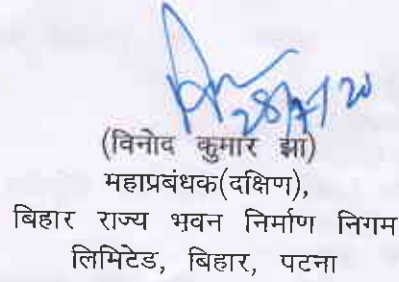 28/7/20
(विनोद कुमार झा)
महाप्रबंधक(दक्षिण),
बिहार राज्य भवन निर्माण निगम
लिमिटेड, बिहार, पटना